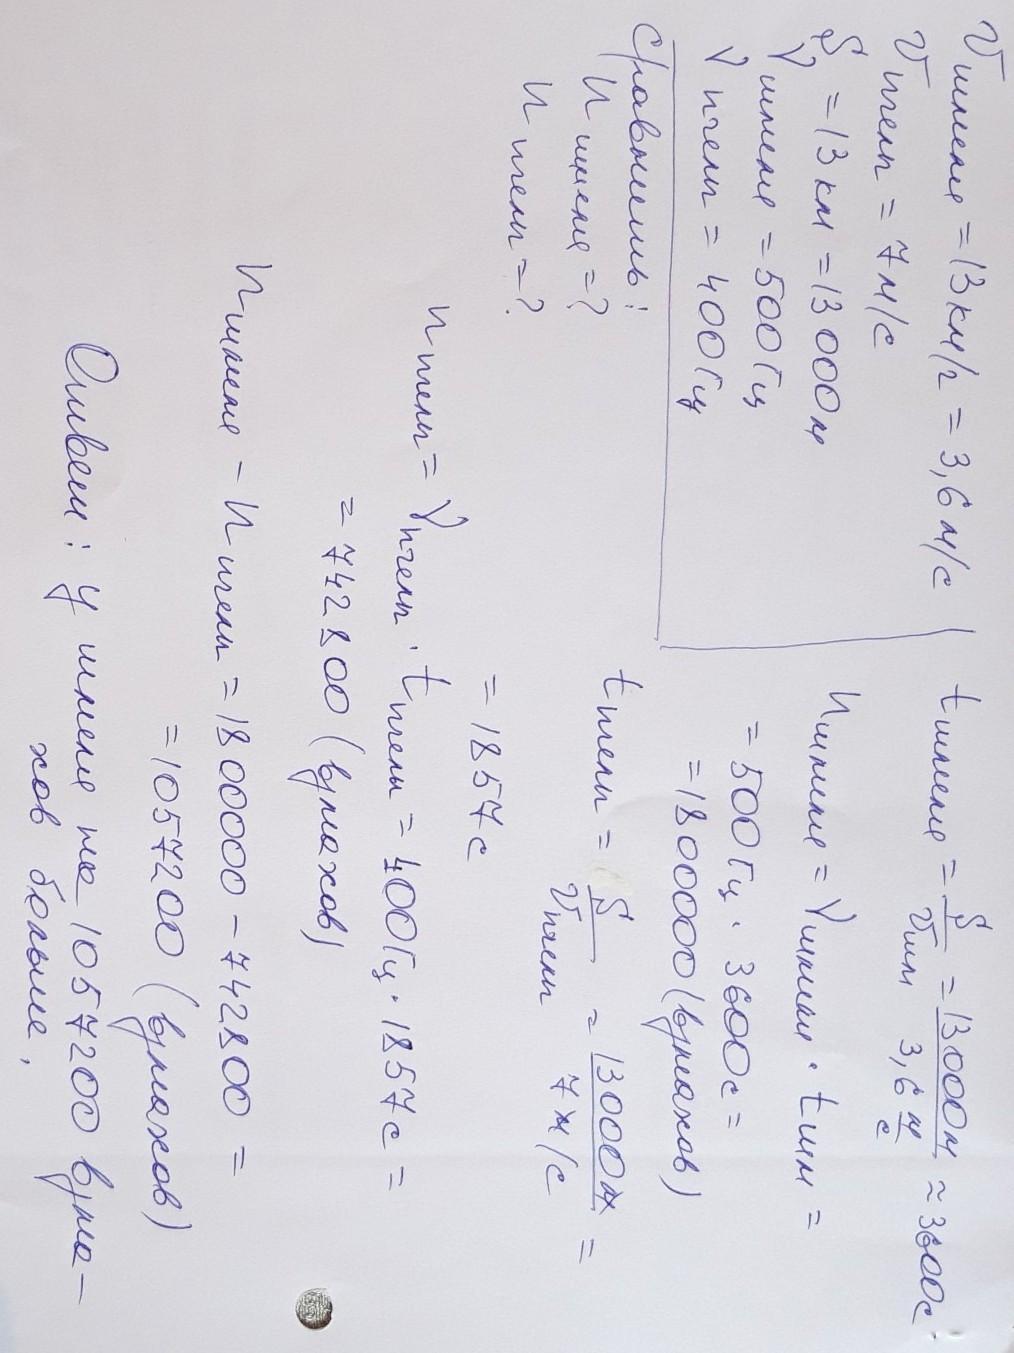 V шмеля = 13 км/г = 3,6 м/с
V пчелы = 7 м/с
S = 13 км = 13 000 м
γ шмеля = 500 Гц
γ пчелы = 400 Гц
Сравнить:
n шмеля = ?
n пчелы = ?
t шмеля = S / V шм = 13000 м / 3,6 м/с ≈ 3600 с.
n шмеля = γ шмеля · t шм =
= 500 Гц · 3600 с =
= 1800000 (взмахов)
t пчелы = S / V пчелы = 13000 м / 7 м/с =
= 1857 с
n пчелы = γ пчелы · t пчелы = 400 Гц · 1857 с =
= 742800 (взмахов)
n шмеля - n пчелы = 1800000 - 742800 =
= 1057200 (взмахов)
Ответ: у шмеля на 1057200 взма-
хов больше.